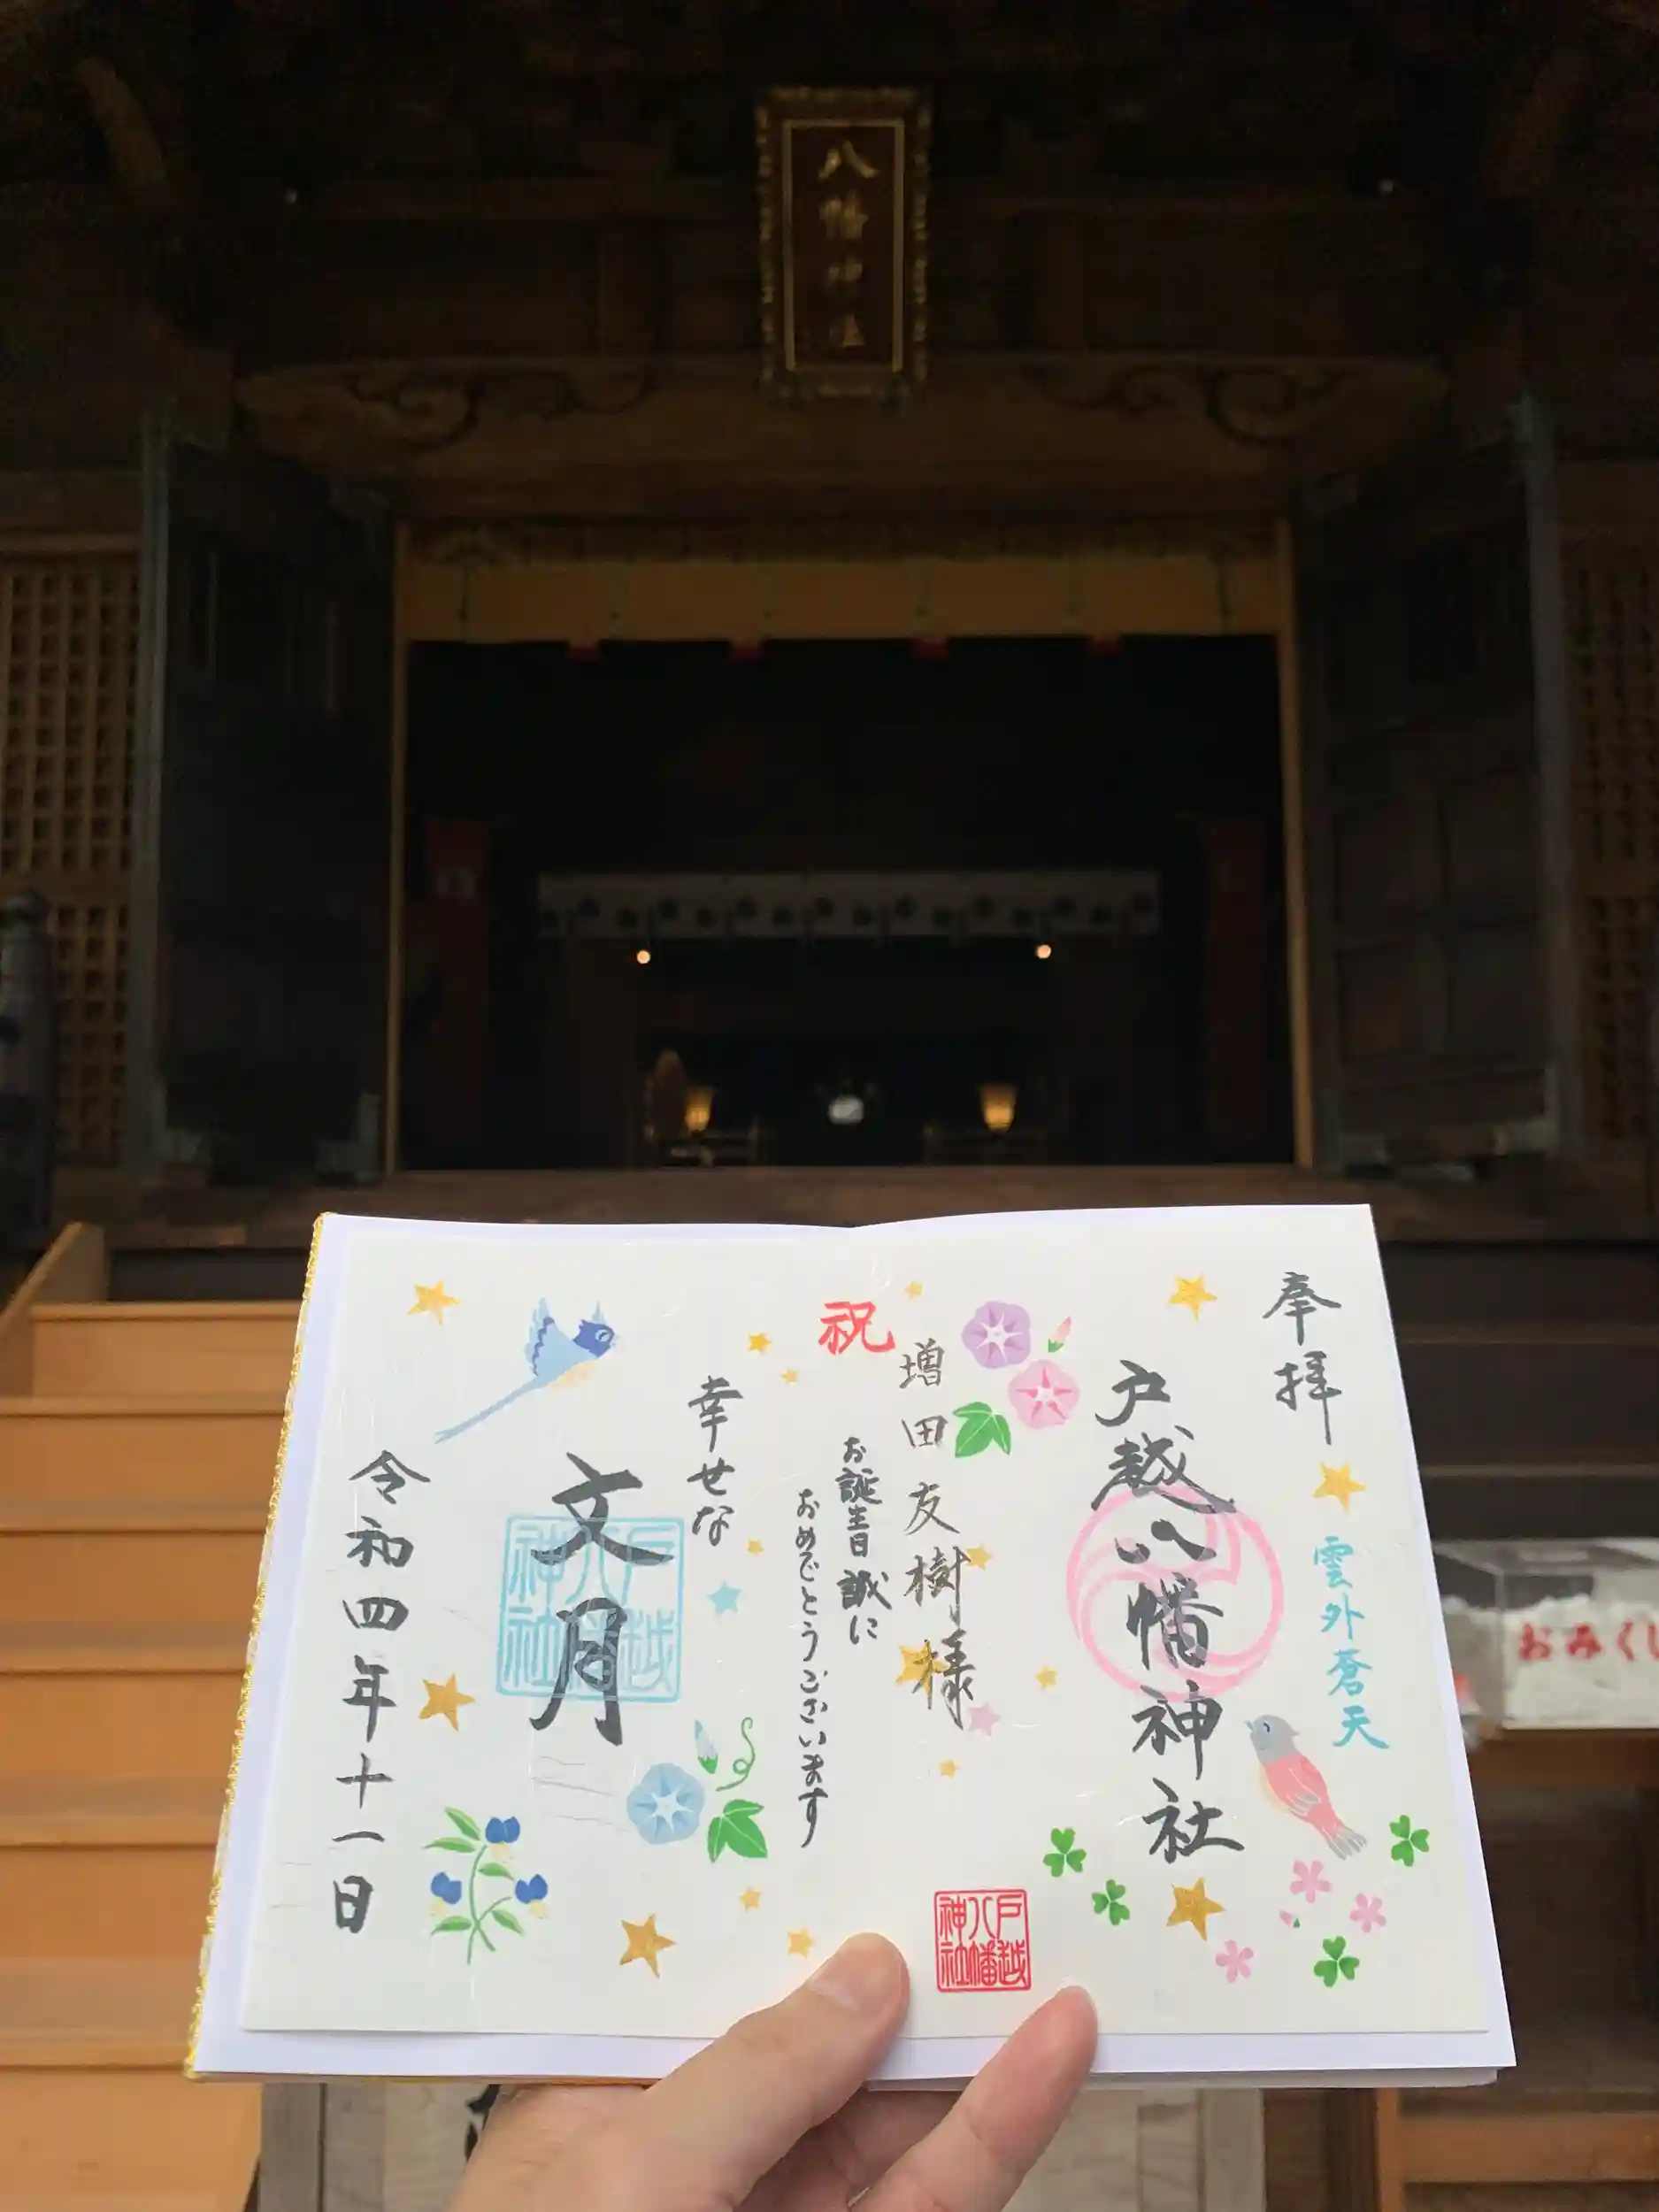 八幡神社
奉拝
雲外蒼天
戸越八幡神社
増田友樹様
祝
お誕生日誠に
おめでとうございます
幸せな
文月
令和四年十一日
戸越八幡神社
戸越八幡神社
おみくじ